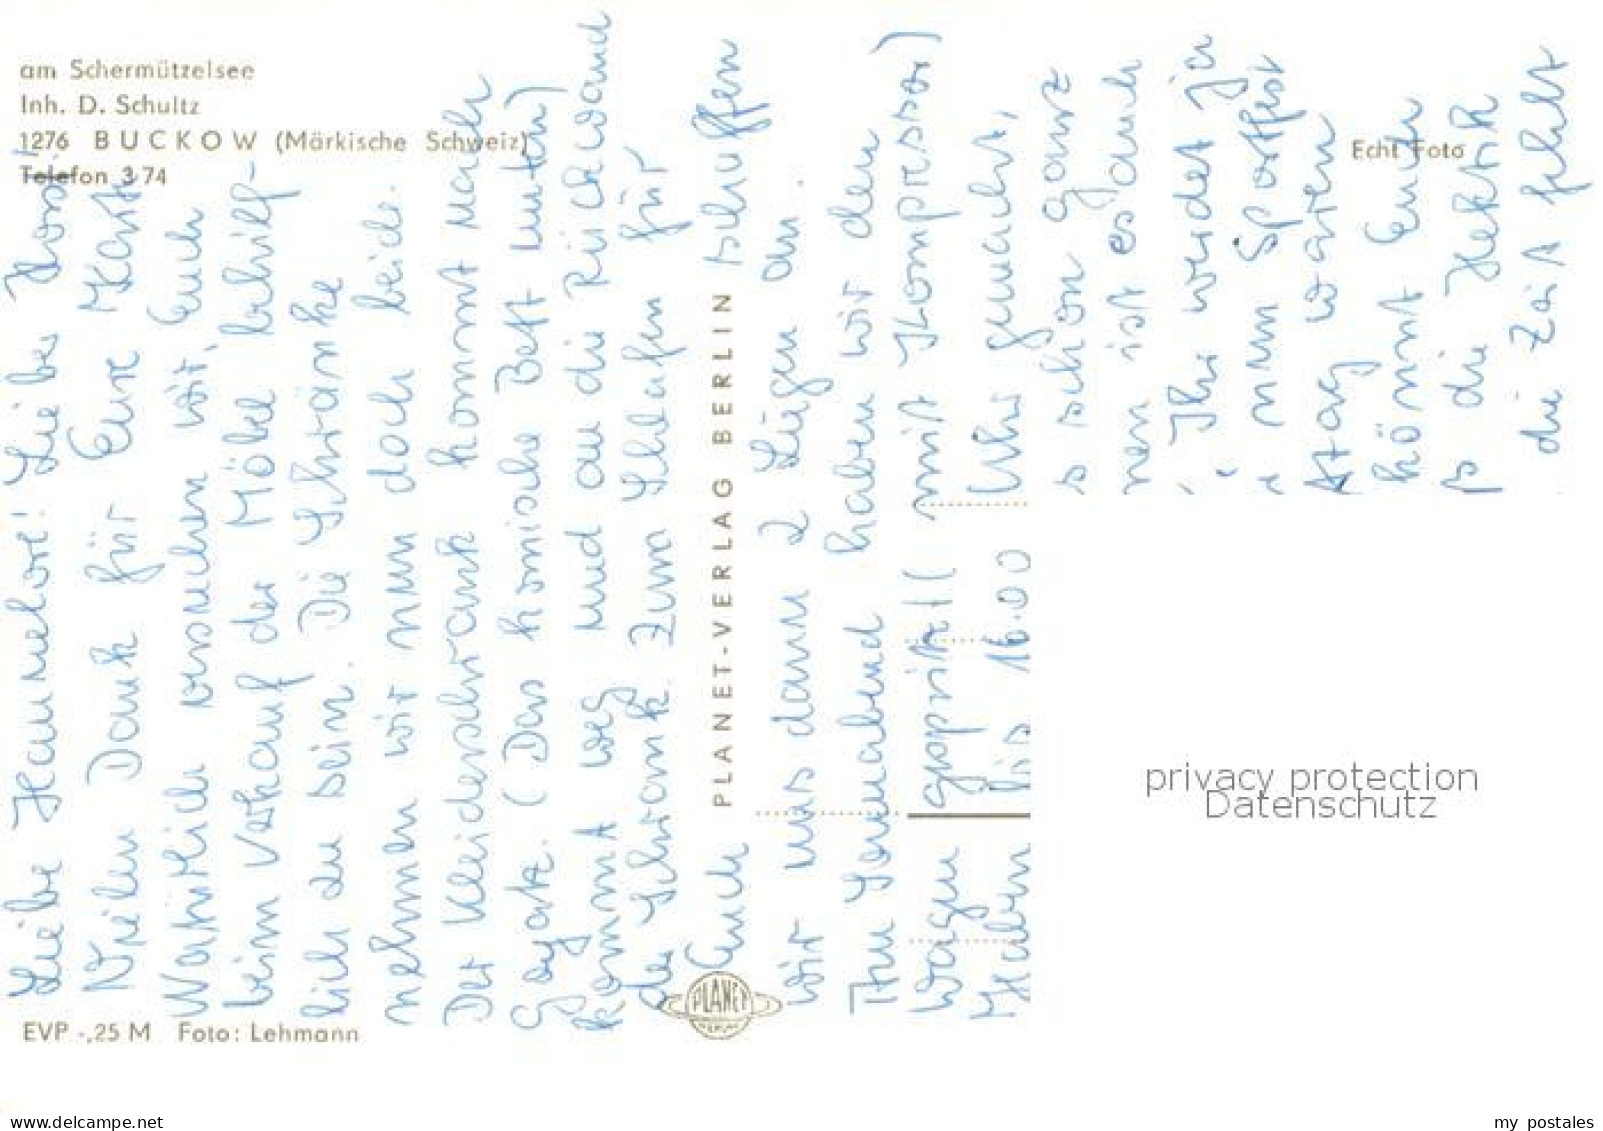 am Schermützelsee
Inh. D. Schultz
1276 BUCKOW (Märkische Schweiz)
Telefon 3 74
Echt Foto
Liebe Hannelore! Lieber Horst!
Vielen Dank für Eure Karte
Wahrlich versuchen wir, Euch
beim Verkauf der Möbel behilf-
lich zu sein. Die Schränke
nehmen wir nun doch beide.
Der Kleiderschrank kommt nach
Gagatz. (Das komische Bett unten)
kommt weg und an die Rückwand
der Schrank. Zum Schlafen für
Euch schaffen
wir uns dann 2 Liegen an.
Am Sonnabend haben wir den
Wagen gespritzt (mit Kompressor)
Haben bis 16.00 Uhr gemacht,
s schon ganz
nen ist es auch
Ihr werdet ja
nun Sportfest
waren
könnt Euch
die Hektik
die Zeit fehlt
PLANET-VERLAG BERLIN
PLANET
VERLAG
EVP -,25 M Foto: Lehmann
privacy protection
Datenschutz
www.delcampe.net
my_postales